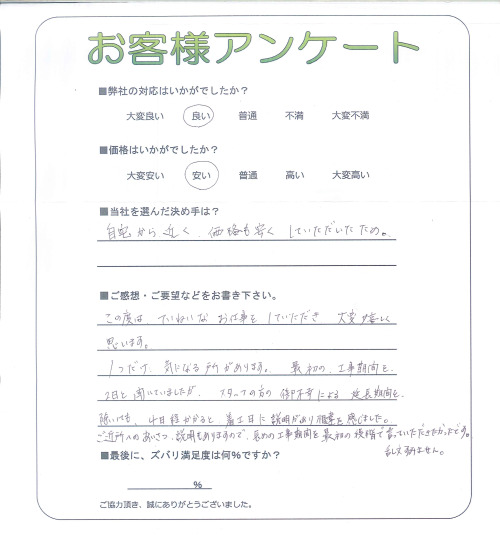 お客様アンケート
■弊社の対応はいかがでしたか？
大変良い 良い 普通 不満 大変不満
■価格はいかがでしたか？
大変安い 安い 普通 高い 大変高い
■当社を選んだ決め手は？
自宅から近く、価格も安くしていただいたため。
■ご感想・ご要望などをお書き下さい。
この度は、ていねいなお仕事をしていただき 大変嬉しく
思います。
1つだけ 気になる所があります。 最初の、工事期間を、
2日と聞いていましたが、スタッフの方の による 延長期間を、
除いても、4日程かかると 着工日に説明があり を感じました。
ご近所へのあいさつ、説明もありますので、長めの工事期間を最初の段階で言っていただきたかったです。
乱文すみません。
■最後に、ズバリ満足度は何%ですか？
%
ご協力頂き、誠にありがとうございました。